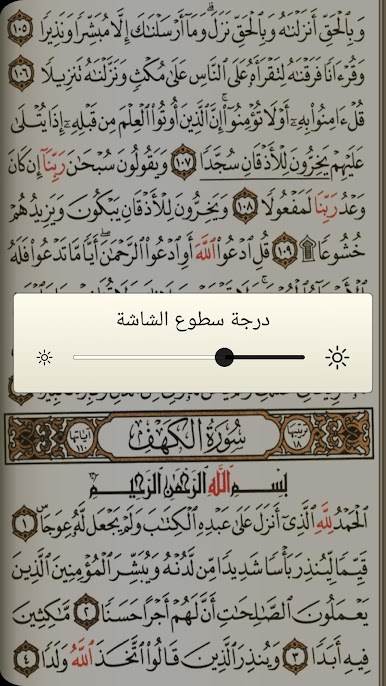 وَبِٱلْحَقِّ أَنزَلْنَٰهُ وَبِٱلْحَقِّ نَزَلَ ۗ وَمَآ أَرْسَلْنَٰكَ إِلَّا مُبَشِّرًا وَنَذِيرًا ١٠٥
وَقُرْءَانًا فَرَقْنَٰهُ لِتَقْرَأَهُۥ عَلَى ٱلنَّاسِ عَلَىٰ مُكْثٍ وَنَزَّلْنَٰهُ تَنزِيلًا ١٠٦
قُلْ ءَامِنُوا۟ بِهِۦٓ أَوْ لَا تُؤْمِنُوٓا۟ ۚ إِنَّ ٱلَّذِينَ أُوتُوا۟ ٱلْعِلْمَ مِن قَبْلِهِۦٓ إِذَا يُتْلَىٰ
عَلَيْهِمْ يَخِرُّونَ لِلْأَذْقَانِ سُجَّدًا ١٠٧ وَيَقُولُونَ سُبْحَٰنَ رَبِّنَآ إِن كَانَ
وَعْدُ رَبِّنَا لَمَفْعُولًا ١٠٨ وَيَخِرُّونَ لِلْأَذْقَانِ يَبْكُونَ وَيَزِيدُهُمْ
خُشُوعًا ۩ ١٠٩ قُلِ ٱدْعُوا۟ ٱللَّهَ أَوِ ٱدْعُوا۟ ٱلرَّحْمَٰنَ ۖ أَيًّا مَّا تَدْعُوا۟ فَلَهُ
درجة سطوع الشاشة
سُورَةُ الكَهْفِ
ترتيبها ١٨
آياتها ١١٠
بِسْمِ ٱللَّهِ ٱلرَّحْمَٰنِ ٱلرَّحِيمِ
ٱلْحَمْدُ لِلَّهِ ٱلَّذِىٓ أَنزَلَ عَلَىٰ عَبْدِهِ ٱلْكِتَٰبَ وَلَمْ يَجْعَل لَّهُۥ عِوَجَا ۜ ١
قَيِّمًا لِّيُنذِرَ بَأْسًا شَدِيدًا مِّن لَّدُنْهُ وَيُبَشِّرَ ٱلْمُؤْمِنِينَ ٱلَّذِينَ
يَعْمَلُونَ ٱلصَّٰلِحَٰتِ أَنَّ لَهُمْ أَجْرًا حَسَنًا ٢ مَّٰكِثِينَ
فِيهِ أَبَدًا ٣ وَيُنذِرَ ٱلَّذِينَ قَالُوا۟ ٱتَّخَذَ ٱللَّهُ وَلَدًا ٤